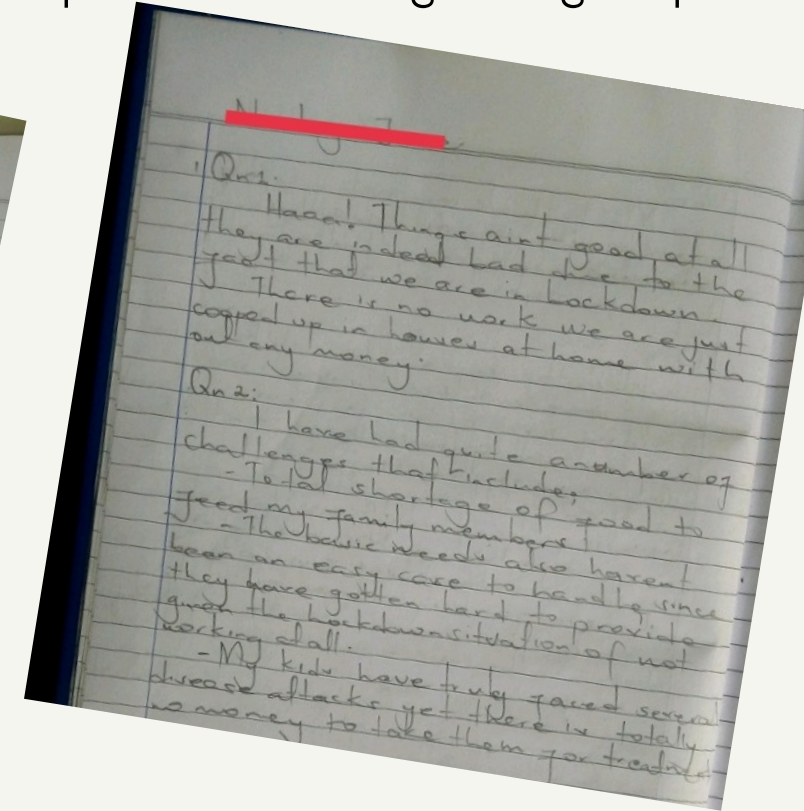 Qn 1.
Haaa! Things aint good atall
they are indeed bad due to the
fact that we are in Lockdown.
There is no work we are just
copped up in houses at home with
out any money.
Qn 2:
I have had quite anumber of
challenges that include;
- Total shortage of food to
feed my family members
- The basic needs also havent
been an easy case to handle since
they have gotten hard to provide
given the lockdown situation of not
working atall.
- My kids have truly faced several
disease attacks yet there is totally
no money to take them for